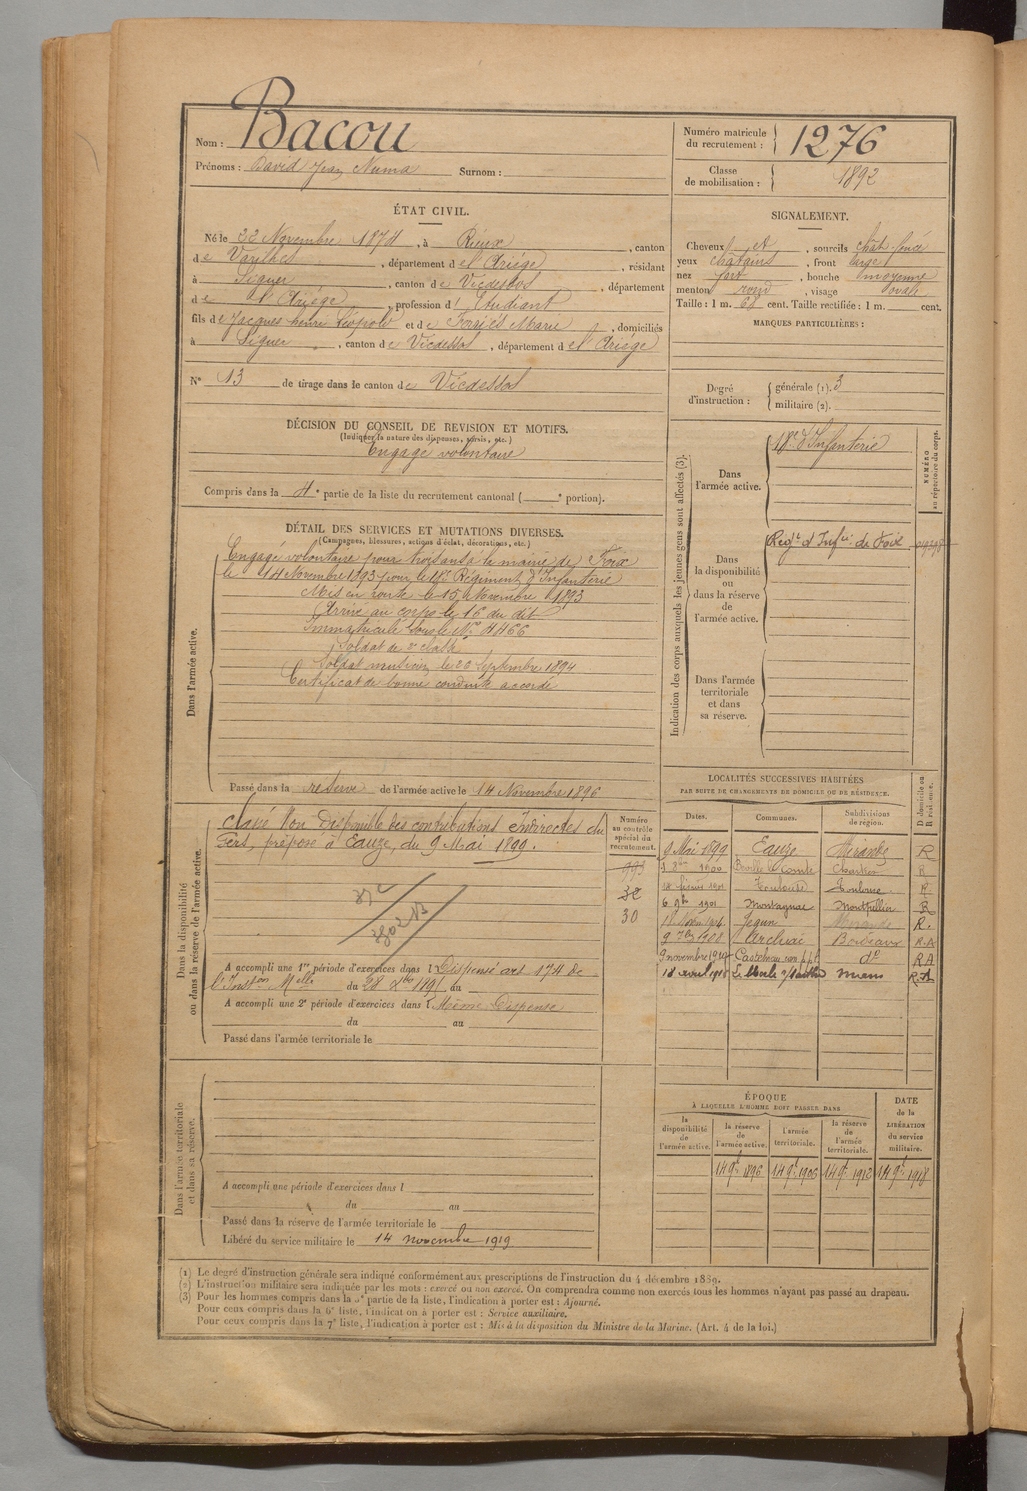 Nom : Bacou
Prénoms : David Jean Numa Surnom :
Numéro matricule du recrutement : 1276
Classe de mobilisation : 1892
ÉTAT CIVIL.
Né le 22 Novembre 1874, à Rieux, canton
de Varilhes, département de l'Ariège, résidant
à Siguer, canton de Vicdessos, département
de l'Ariège, profession d'Etudiant
fils de Jacques henri Léopold et de Forriés Marie, domiciliés
à Siguer, canton de Vicdessos, département de l'Ariège
N° 13 de tirage dans le canton de Vicdessos
SIGNALEMENT.
Cheveux et, sourcils chât. foncé
yeux châtains, front large
nez fort, bouche moyenne
menton rond, visage ovale
Taille : 1 m. cent. Taille rectifiée : 1 m. cent.
MARQUES PARTICULIÈRES :
Degré d'instruction : générale (1). 3
militaire (2).
DÉCISION DU CONSEIL DE REVISION ET MOTIFS.
(Indiquer la nature des dispenses, sursis, etc.)
Engagé volontaire
Compris dans la 4e partie de la liste du recrutement cantonal ( e portion).
DÉTAIL DES SERVICES ET MUTATIONS DIVERSES.
(Campagnes, blessures, actions d'éclat, décorations, etc.)
Dans l'armée active.
Engagé volontaire pour trois ans à la mairie de Foix
le 14 Novembre 1893 pour le 18e Régiment d'Infanterie
Mis en route le 15 Novembre 1893
Arrivé au corps le 16 du dit
Immatriculé sous le N° 4466
Soldat de 2e classe
Soldat musicien le 20 Septembre 1894
Certificat de bonne conduite accordé
Passé dans la réserve de l'armée active le 14 Novembre 1896
Indication des corps auxquels les jeunes gens sont affectés (3).
NUMÉRO au répertoire du corps.
Dans l'armée active.
18e d'Infanterie
Dans la disponibilité ou dans la réserve de l'armée active.
Regt d'Infie de Foix
Dans l'armée territoriale et dans sa réserve.
Dans la disponibilité ou dans la réserve de l'armée active.
Classé Non Disponible des contributions Indirectes du
Gers, préposé à Eauze, du 9 Mai 1899.
372
3802 B
A accompli une 1re période d'exercices dans l Dispensé art 174 de
l'Inston Melle du 28 Xbre 1895 au
A accompli une 2e période d'exercices dans l Même Dispense
du au
Passé dans l'armée territoriale le
Numéro au contrôle spécial du recrutement.
993
32
30
LOCALITÉS SUCCESSIVES HABITÉES
PAR SUITE DE CHANGEMENTS DE DOMICILE OU DE RÉSIDENCE.
Dates. Communes. Subdivisions de région. D domicile ou R résidence.
9 Mai 1899 Eauze Mirande R
1900 Bonville le Comte Chartres R
18 février 1901 Toulouse Toulouse R
6 9bre 1901 Montagnac Montpellier R
Jegun Mirande R.
1908 Archiac Bordeaux R.A
9 novembre 1910 Castelnau do RA
18 avril 1915 Mans R.A
ÉPOQUE
À LAQUELLE L'HOMME DOIT PASSER DANS
la disponibilité de l'armée active. la réserve de l'armée active. l'armée territoriale. la réserve de l'armée territoriale.
DATE de la LIBÉRATION du service militaire.
14 9bre 1896 14 9bre 1906 14 9bre 1912 14 9bre 1918
Dans l'armée territoriale et dans sa réserve.
A accompli une période d'exercices dans l
du au
Passé dans la réserve de l'armée territoriale le
Libéré du service militaire le 14 novembre 1919
(1) Le degré d'instruction générale sera indiqué conformément aux prescriptions de l'instruction du 4 décembre 1889.
(2) L'instruction militaire sera indiquée par les mots : exercé ou non exercé. On comprendra comme non exercés tous les hommes n'ayant pas passé au drapeau.
(3) Pour les hommes compris dans la 5e partie de la liste, l'indication à porter est : Ajourné.
Pour ceux compris dans la 6e liste, l'indication à porter est : Service auxiliaire.
Pour ceux compris dans la 7e liste, l'indication à porter est : Mis à la disposition du Ministre de la Marine. (Art. 4 de la loi.)